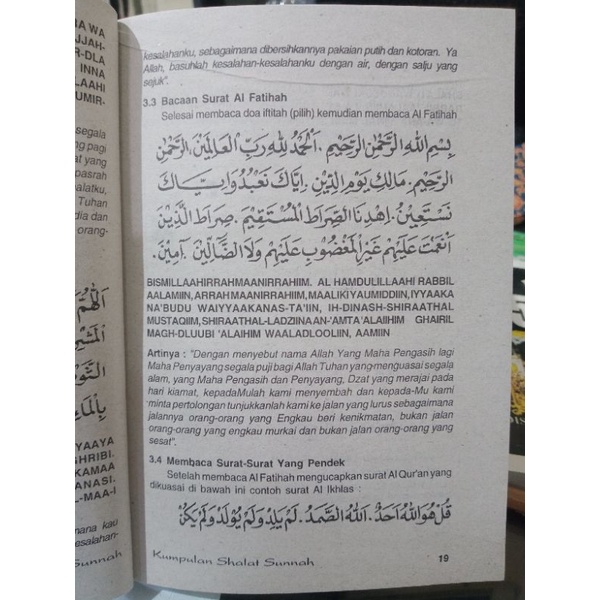 A WA
JJAH-
R-DLA
INNA
LAAHI
UMIR-
segala
ng pagi
at yang
pasrah
alatku,
Tuhan
dia dan
orang-
اَللّٰهُمَّ
YAAYA
GHRIBI.
KAMAA
ANASI.
L-MAA-I
mana kau
esalahan-
Sunnah
kesalahanku, sebagaimana dibersihkannya pakaian putih dan kotoran. Ya
Allah, basuhlah kesalahan-kesalahanku dengan air, dengan salju yang
sejuk".
3.3 Bacaan Surat Al Fatihah
Selesai membaca doa iftitah (pilih) kemudian membaca Al Fatihah
بِسْمِ اللهِ الرَّحْمٰنِ الرَّحِيْمِ. اَلْحَمْدُ لِلّٰهِ رَبِّ الْعَالَمِيْنَ، الرَّحْمٰنِ
الرَّحِيْمِ. مَالِكِ يَوْمِ الدِّيْنِ. اِيَّاكَ نَعْبُدُ وَاِيَّاكَ
نَسْتَعِيْنُ. اِهْدِنَا الصِّرَاطَ الْمُسْتَقِيْمَ. صِرَاطَ الَّذِيْنَ
اَنْعَمْتَ عَلَيْهِمْ غَيْرِ الْمَغْضُوْبِ عَلَيْهِمْ وَلَا الضَّآلِّيْنَ. آمِيْنَ.
BISMILLAAHIRRAHMAANIRRAHIIM. AL HAMDULILLAAHI RABBIL
AALAMIIN, ARRAH MAANIRRAHIIM, MAALIKI YAUMIDDIIN, IYYAAKA
NA'BUDU WAIYYAAKANAS-TA'IIN, IH-DINASH-SHIRAATHAL
MUSTAQIIM, SHIRAATHAL-LADZIINAAN-'AMTA 'ALAIIHIM GHAIRIL
MAGH-DLUUBI 'ALAIHIM WAALADLOOLIIN, AAMIIN
Artinya : "Dengan menyebut nama Allah Yang Maha Pengasih lagi
Maha Penyayang segala puji bagi Allah Tuhan yang menguasai segala
alam, yang Maha Pengasih dan Penyayang, Dzat yang merajai pada
hari kiamat, kepadaMulah kami menyembah dan kepada-Mu kami
minta pertolongan tunjukkanlah kami ke jalan yang lurus sebagaimana
jalannya orang-orang yang Engkau beri kenikmatan, bukan jalan
orang-orang yang engkau murkai dan bukan jalan orang-orang yang
sesat".
3.4 Membaca Surat-Surat Yang Pendek
Setelah membaca Al Fatihah mengucapkan surat Al Qur'an yang
dikuasai di bawah ini contoh surat Al Ikhlas :
قُلْ هُوَ اللهُ اَحَدٌ. اَللهُ الصَّمَدُ. لَمْ يَلِدْ وَلَمْ يُوْلَدْ وَلَمْ يَكُنْ
Kumpulan Shalat Sunnah
19